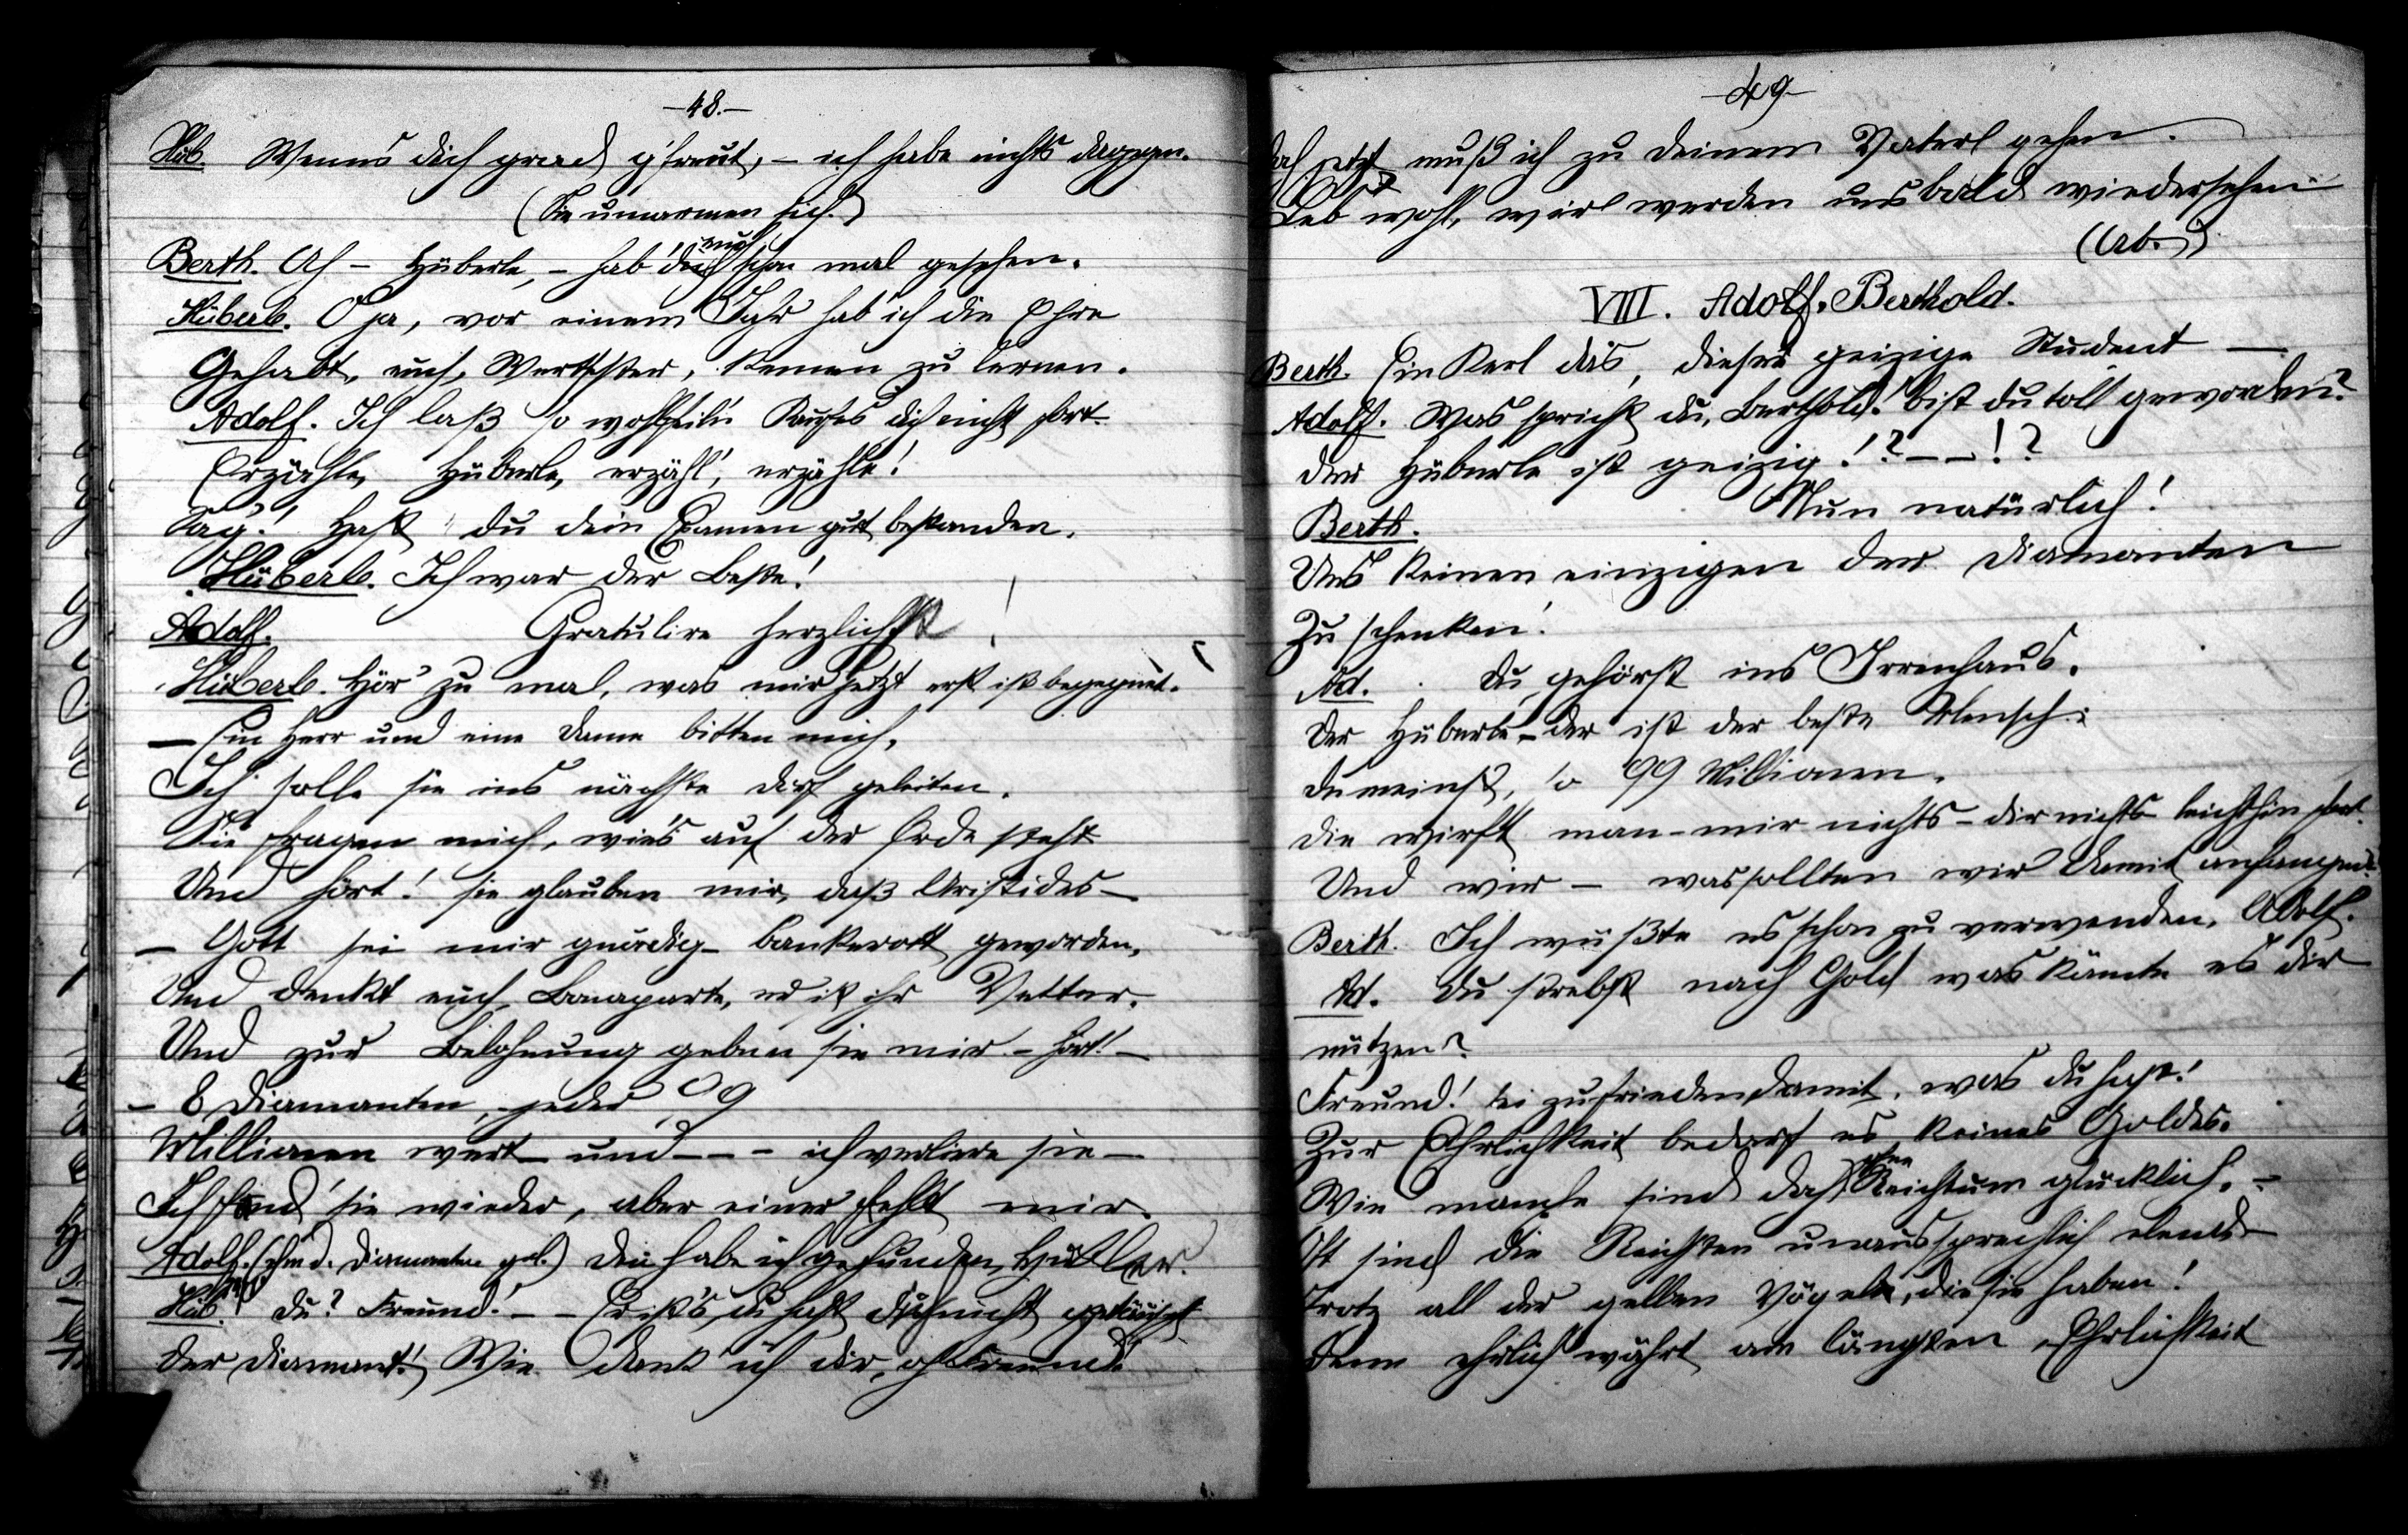 -48.-
Hüb. Wenns dich grad g'freut, - ich habe nichts dagegen.
(Sie umarmen sich.)
Berth. Ah - Hüberle, - hab' euch schon mal gesehen.
Hüberle. O ja, vor einem Jahr hab' ich die Ehre
Gehabt, euch, Wertester, kennen zu lernen.
Adolf. Ich laß so wohlfeil'n Kaufes dich nicht fort.
Erzähle, Hüberle, erzähl', erzähle!
Sag'! Hast du dein Examen gut bestanden.
Hüberle. Ich war der Beste!
Adolf. Gratulire herzlichst!
Hüberle. Hör' zu mal, was mir jetzt erst ist begegnet.
- Ein Herr und eine Dame bitten mich,
Ich solle sie ins nächste Dorf geleiten.
Sie fragen mich, wie's auf der Erde steht
Und hört! sie glauben mir, daß Aristides -
- Gott sei mir gnädig - bankerott geworden,
Und denkt euch, Bonaparte, er ist ihr Vetter.
Und zur Belohnung geben sie mir - hört! -
- 8 Diamanten, jeder 99
Millionen wert - und - - - ich verliere sie -
Ich fand' sie wieder, aber einer fehlt mir.
Adolf. (ihm d. Diamanten geb.) Den habe ich gefunden,
Hüb. Du? Freund! - - Er ist's, du hast dich nicht getäuscht
Der Diamant! Wie dank' ich dir, oh Freund!
-49-
Doch jetzt muß ich zu deinem Vaterl gehen.
Leb' wohl, wir werden uns bald wiedersehen
(Ab.)
VIII. Adolf. Berthold.
Berth. Ein Kerl das, dieser geizige Student -
Adolf. Was sprichst du, Berthold! bist du toll geworden?
Der Hüberle ist geizig!? - - !?
Berth. Nun natürlich!
Uns keinen einzigen der Diamanten
Zu schenken!
Ad. Du gehörst ins Irrenhaus.
Der Hüberle - der ist der beste Mensch:
Du meinst, so 99 Millionen,
Die wirft man - mir nichts - dir nichts - leichthin fort.
Und wir - was sollten wir damit anfangen?
Berth. Ich wüßte es schon zu verwenden, Adolf.
Ad. Du strebst nach Gold was könnte es dir
nützen?
Freund! sei zufrieden damit, was du hast!
Zur Ehrlichkeit bedarf es keines Goldes.
Wie manche sind doch ohne Reichtum glücklich. -
Oft sind die Reichsten unaussprechlich elend
Trotz all der gelben Vögel, die sie haben!
Denn ehrlich währt am längsten, Ehrlichkeit